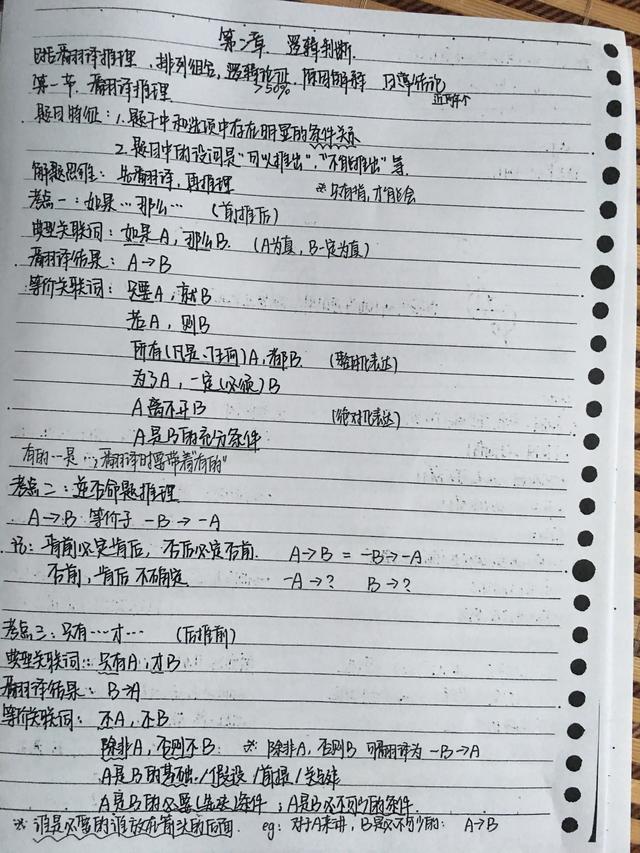 第二章. 逻辑判断
包括翻译推理、排列组合, 逻辑论证, 原因解释 日常结论
>50% 近两年
第一节. 翻译推理
题目特征: 1. 题干中和选项中存在明显的条件关系
2. 题目中的设问是"可以推出", "不能推出"等.
解题思维: 先翻译, 再推理 ※只有背, 才能会
考点一: 如果…那么… (前推后)
典型关联词: 如果A, 那么B. (A为真, B一定为真)
翻译结果: A→B
等价关联词: 只要A, 就B
若A, 则B
所有(凡是、任何)A, 都B. (整体化表达)
为了A, 一定(必须)B
A离不开B (绝对化表达)
A是B的充分条件
有的…是…, 翻译时要带着"有的"
考点二: 逆否命题推理
A→B 等价于 -B→-A
记: 肯前必定肯后, 否后必定否前. A→B = -B→-A
否前, 肯后 不确定 -A→? B→?
考点三: 只有…才… (后推前)
典型关联词: 只有A, 才B
翻译结果: B→A
等价关联词: 不A, 不B
除非A, 否则不B. ※ 除非A, 否则B 可翻译为 -B→A
A是B的基础/假设/前提/关键
A是B的必要(先决)条件; A是B必不可少的条件.
※ 谁是必要的谁放在箭头的后面. eg: 对于A来讲, B是必不可少的: A→B